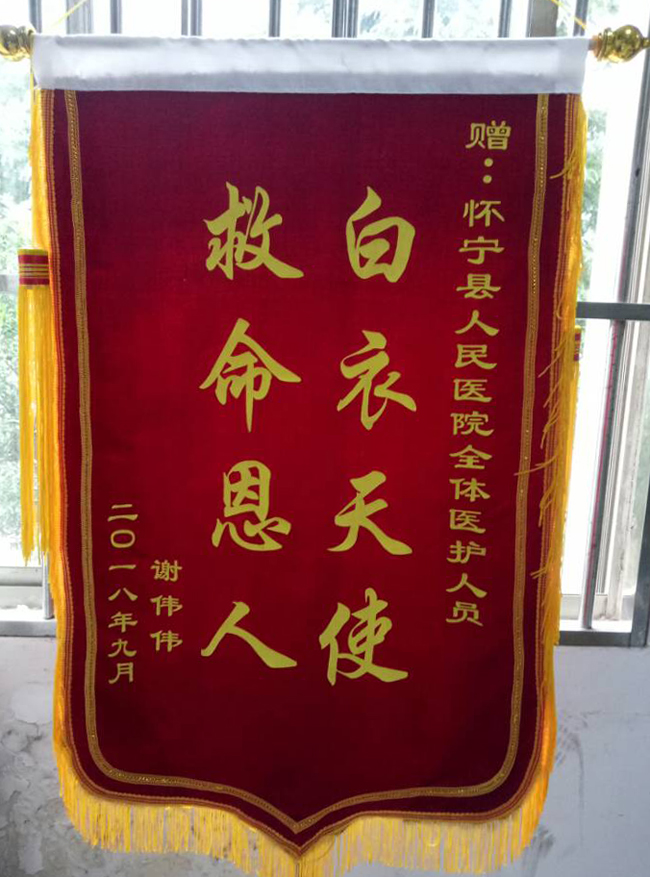 赠：怀宁县人民医院全体医护人员
白衣天使
救命恩人
谢伟伟
二〇一八年九月